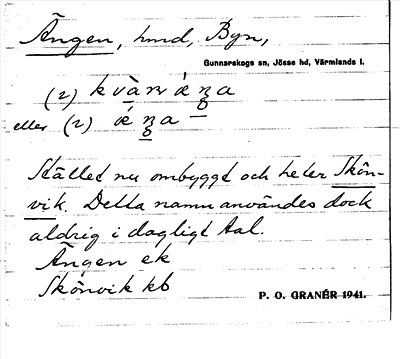 Ängen, hmd, Byn,
Gunnarskogs sn, Jösse hd, Värmlands l.
(2)
eller (2)
Stället nu ombyggt och heter Skön-
vik. Detta namn användes dock
aldrig i dagligt tal.
Ängen ek
Skönvik kb
P. O. GRANÉR 1941.